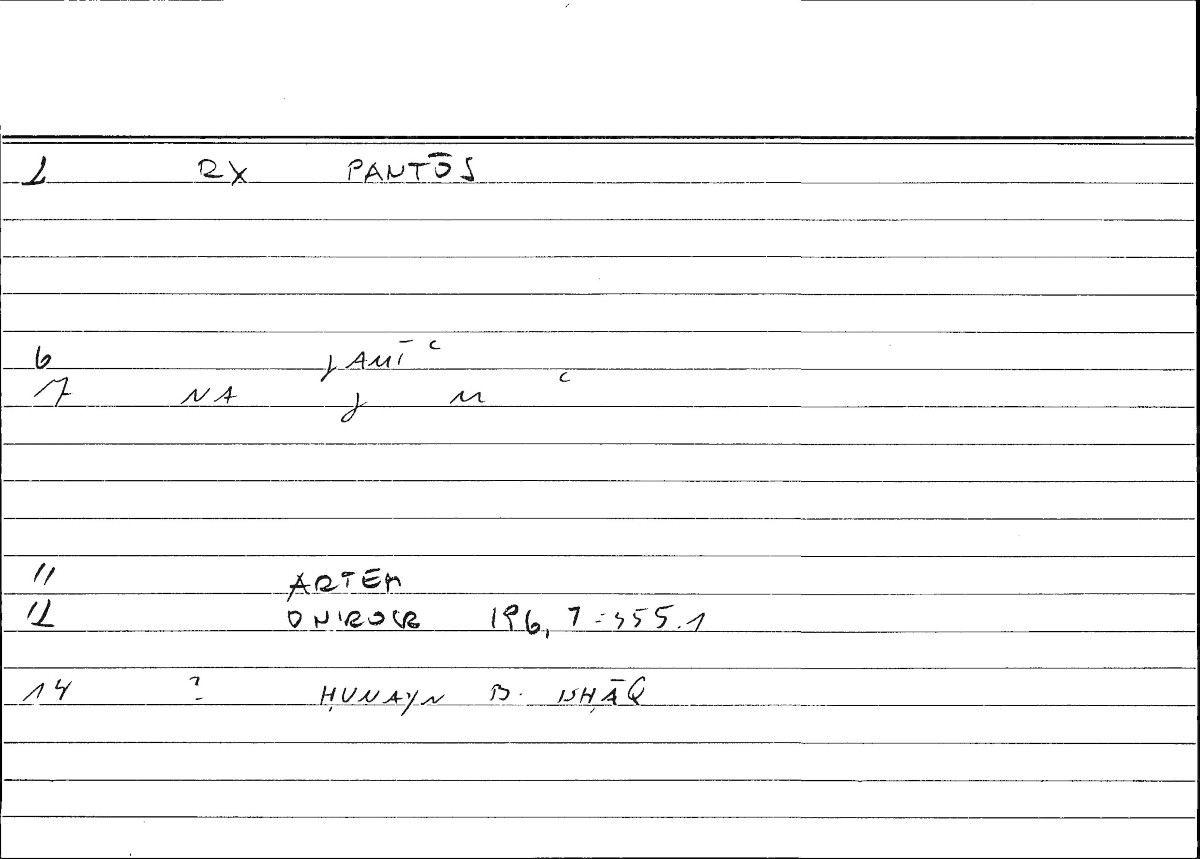 1 RX PANTŌS
6 ǧAMĪʿ
7 NA ǧ M ʿ
11 ARTEM
12 ONIROCR 196, 7 = 355.1
14 ? ḤUNAYN B. ISḤĀQ